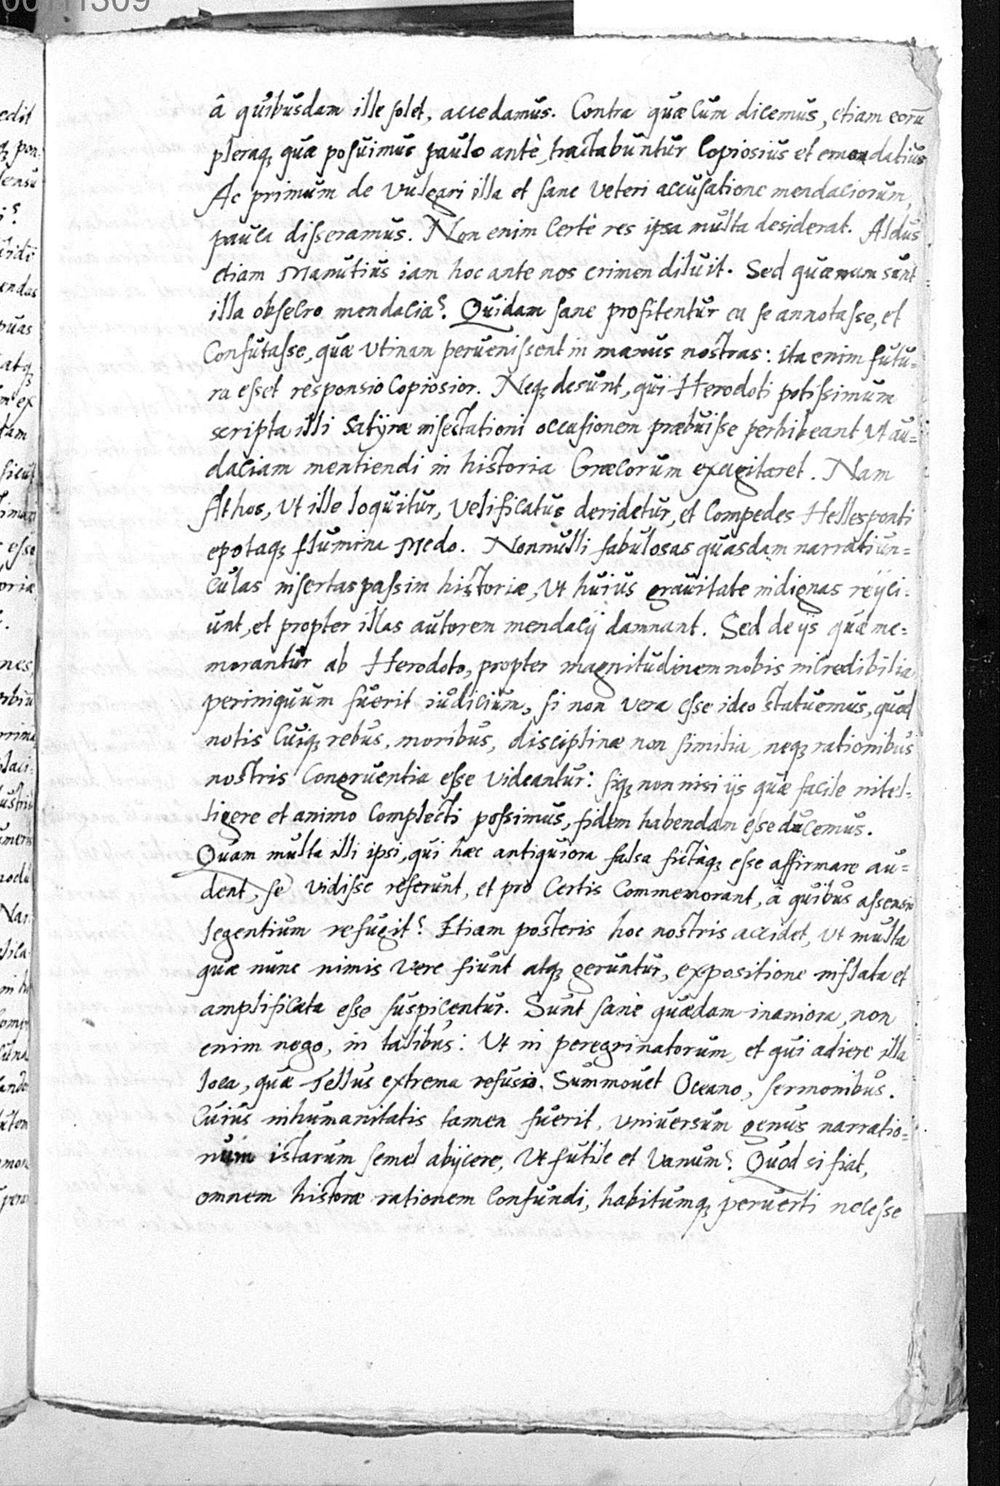 00111309
â quibusdam ille solet, accedamus. Contra quæ cum dicemus, etiam eorū
pleraq; quæ posuimus paulo antè, tractabuntur copiosius et emendatius
Ac primum de vulgari illa et sane veteri accusatione mendaciorum,
pauca disseramus. Non enim certè res ipsa multa desiderat. Aldus
etiam Manutius iam hoc ante nos crimen diluit. Sed quænam sunt
illa obsecro mendacia? Quidam sane profitentur ea se annotasse, et
confutasse, quæ utinam peruenissent in manus nostras: ita enim futu-
ra esset responsio copiosior. Neq; desunt, qui Herodoti potissimum
scripta illi Satÿræ insectationi occasionem præbuisse perhibeant ut au-
daciam mentiendi in historia Græcorum exagitaret. Nam
Athos, ut ille loquitur, velificatus deridetur, et compedes Hellesponti
epotaq; flumina Medo. Nonnulli fabulosas quasdam narratiun-
culas insertas passim historiæ, ut huius grauitate indignas reijci-
unt, et propter illas autorem mendacij damnant. Sed de ijs quæ me-
morantur ab Herodoto, propter magnitudinem nobis incredibilia
periniquum fuerit iudicium, si non vera esse ideo statuemus, quod
notis cuiq; rebus, moribus, disciplinæ non similia, neq; rationibus
nostris congruentia esse videantur: siq; non nisi ijs quæ facile intel-
ligere et animo complecti possimus, fidem habendam esse ducemus.
Quam multa illi ipsi, qui hæc antiquiora falsa fictàq; esse affirmare au-
dent, se vidisse referunt, et pro certis commemorant, à quibus assensio
legentium refugit? Etiam posteris hoc nostris accidet, ut multa
quæ nunc nimis vere fiunt atq; geruntur, expositione inflata et
amplificata esse suspicentur. Sunt sanè quædam inaniora, non
enim nego, in talibus: ut in peregrinatorum, et qui adiere illa
loca, quæ Tellus extrema refuso. Summouet Oceano, sermonibus.
Cuius inhumanitatis tamen fuerit, universum genus narratio-
num istarum semel abijcere, ut futile et vanum? Quod si fiat,
omnem historiæ rationem confundi, habitumq; peruerti necesse